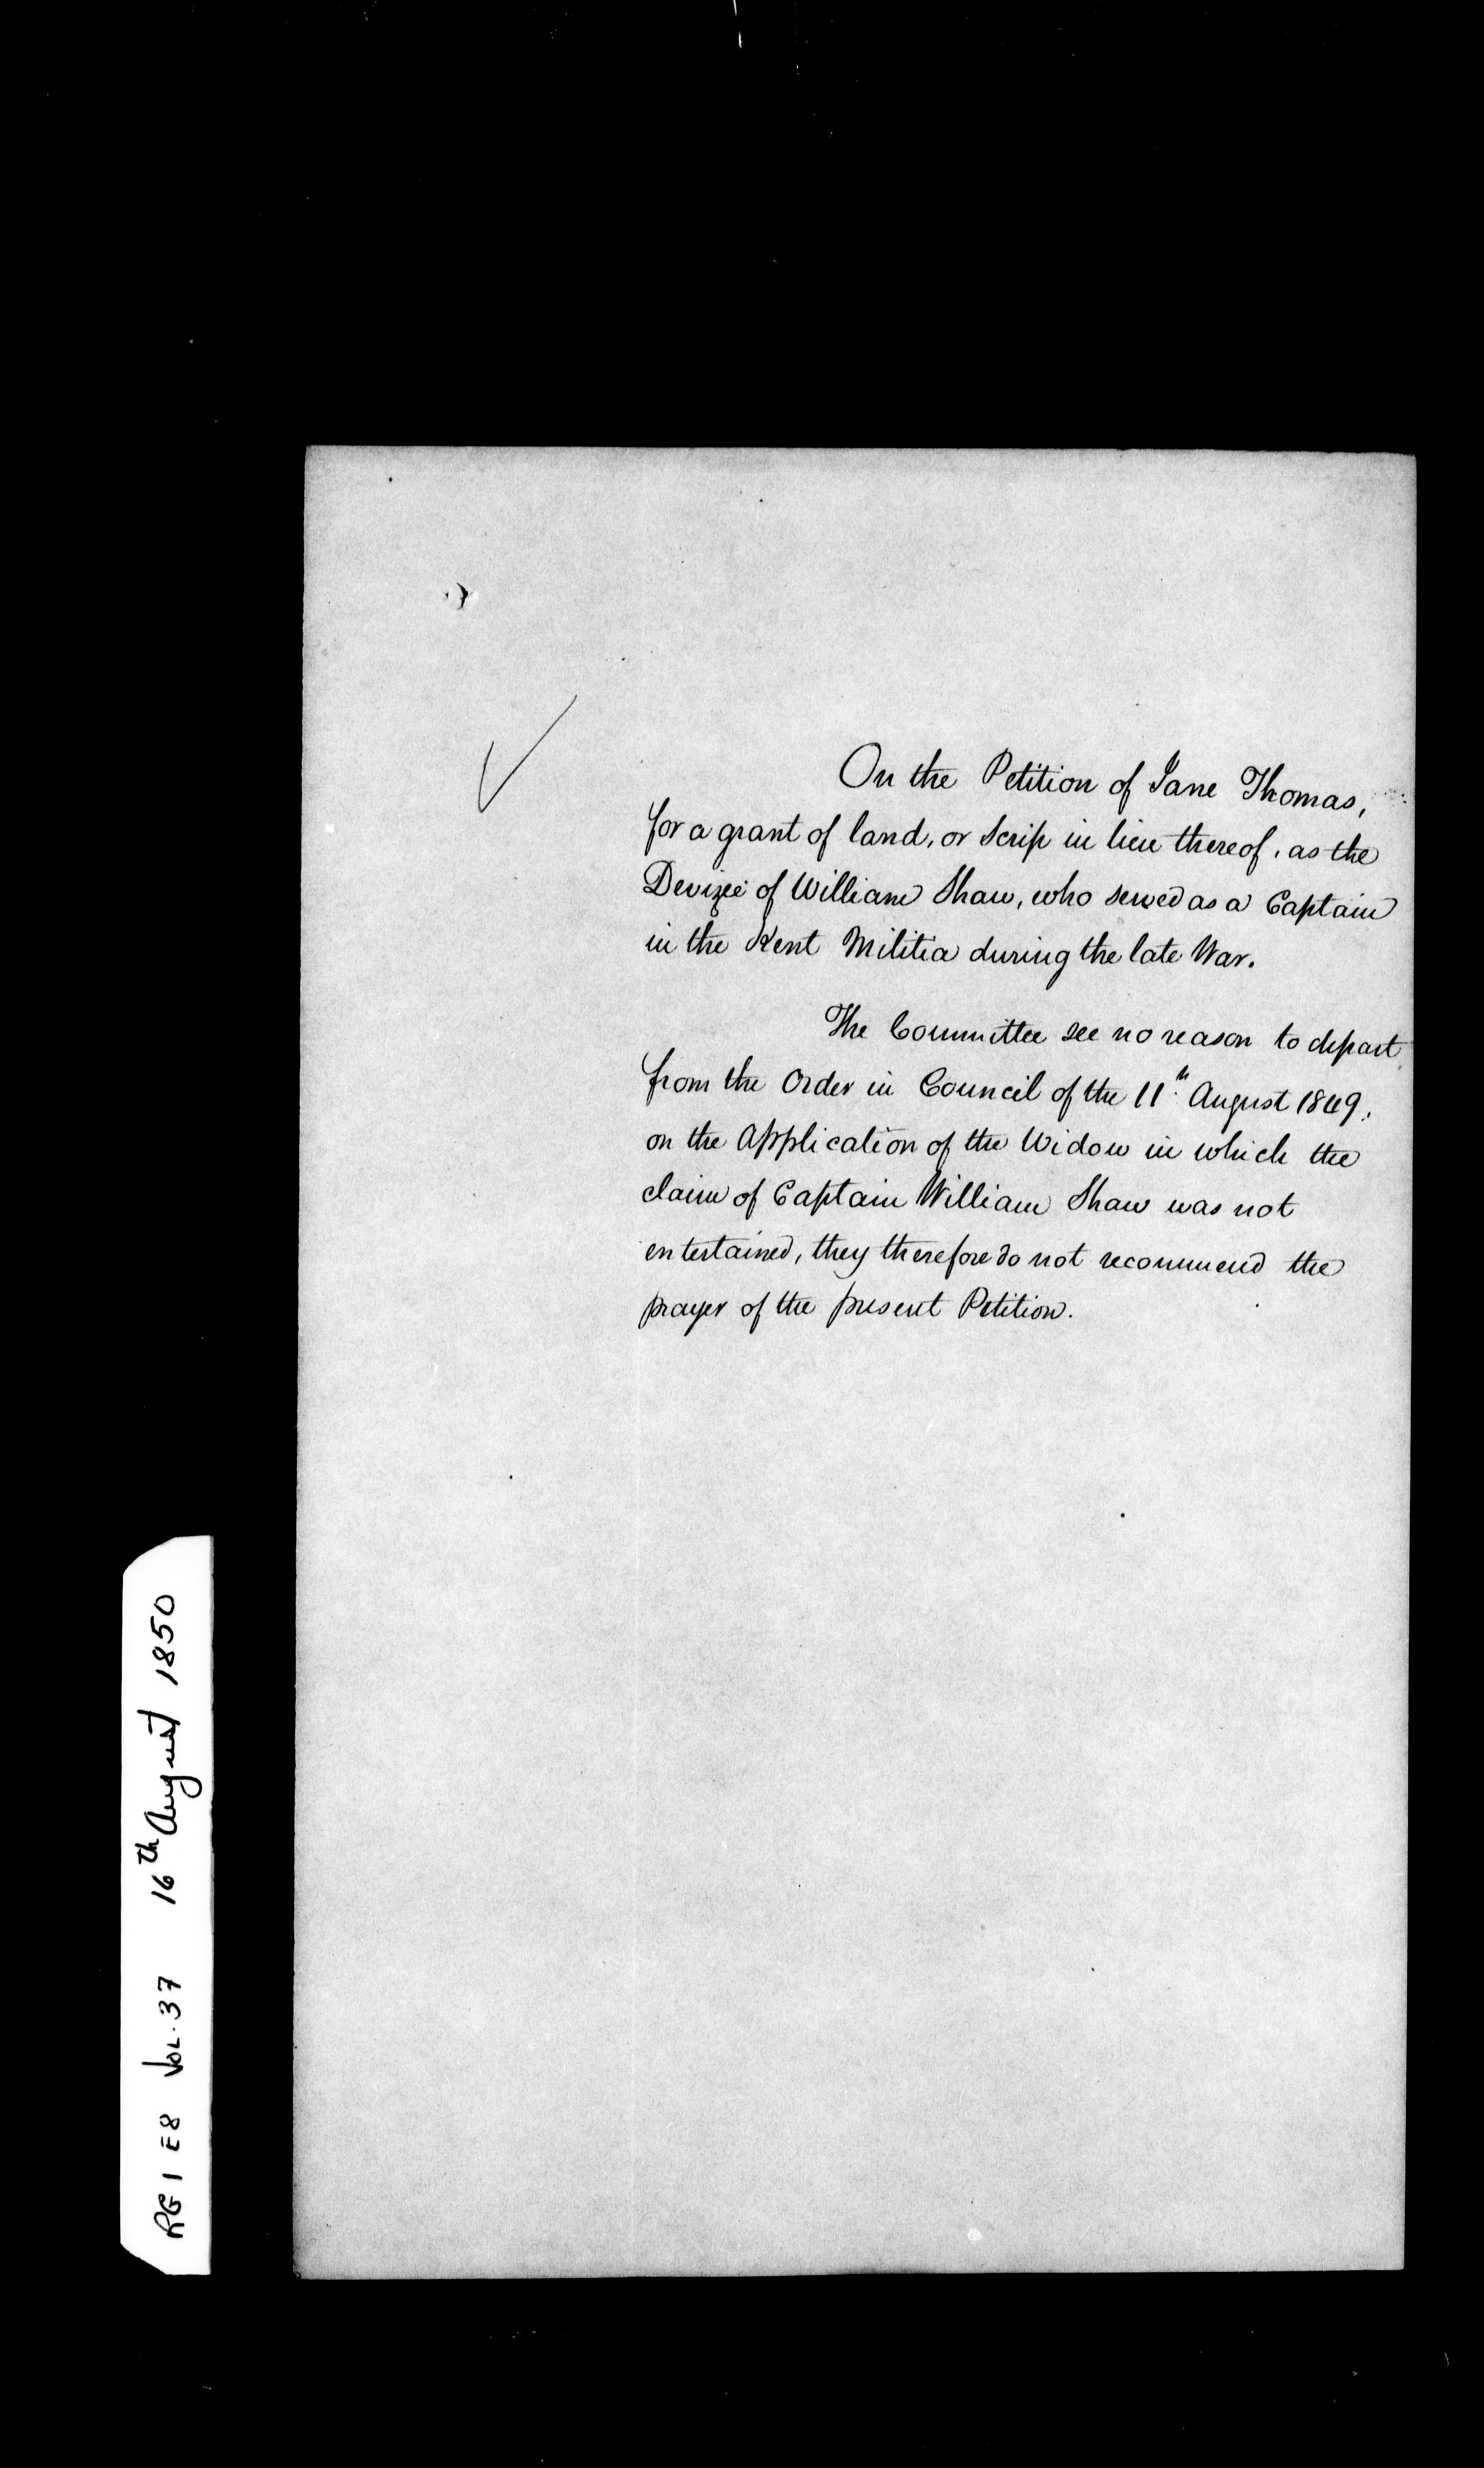 On the Petition of Jane Thomas,
for a grant of land, or Scrip in lieu thereof, as the
Devizee of William Shaw, who served as a Captain
in the Kent Militia during the late War.
The Committee see no reason to depart
from the Order in Council of the 11th August 1849,
on the Application of the Widow in which the
claim of Captain William Shaw was not
entertained, they therefore do not recommend the
prayer of the present Petition.
RG 1 E8 VOL. 37 16th August 1850